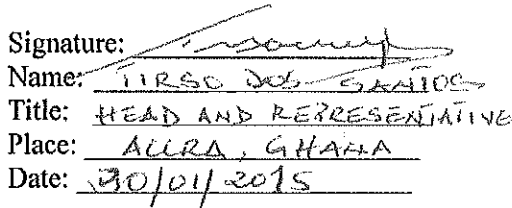 Signature:
Name: TIRSO DOS SANTOS
Title: HEAD AND REPRESENTATIVE
Place: ACCRA, GHANA
Date: 30/01/2015